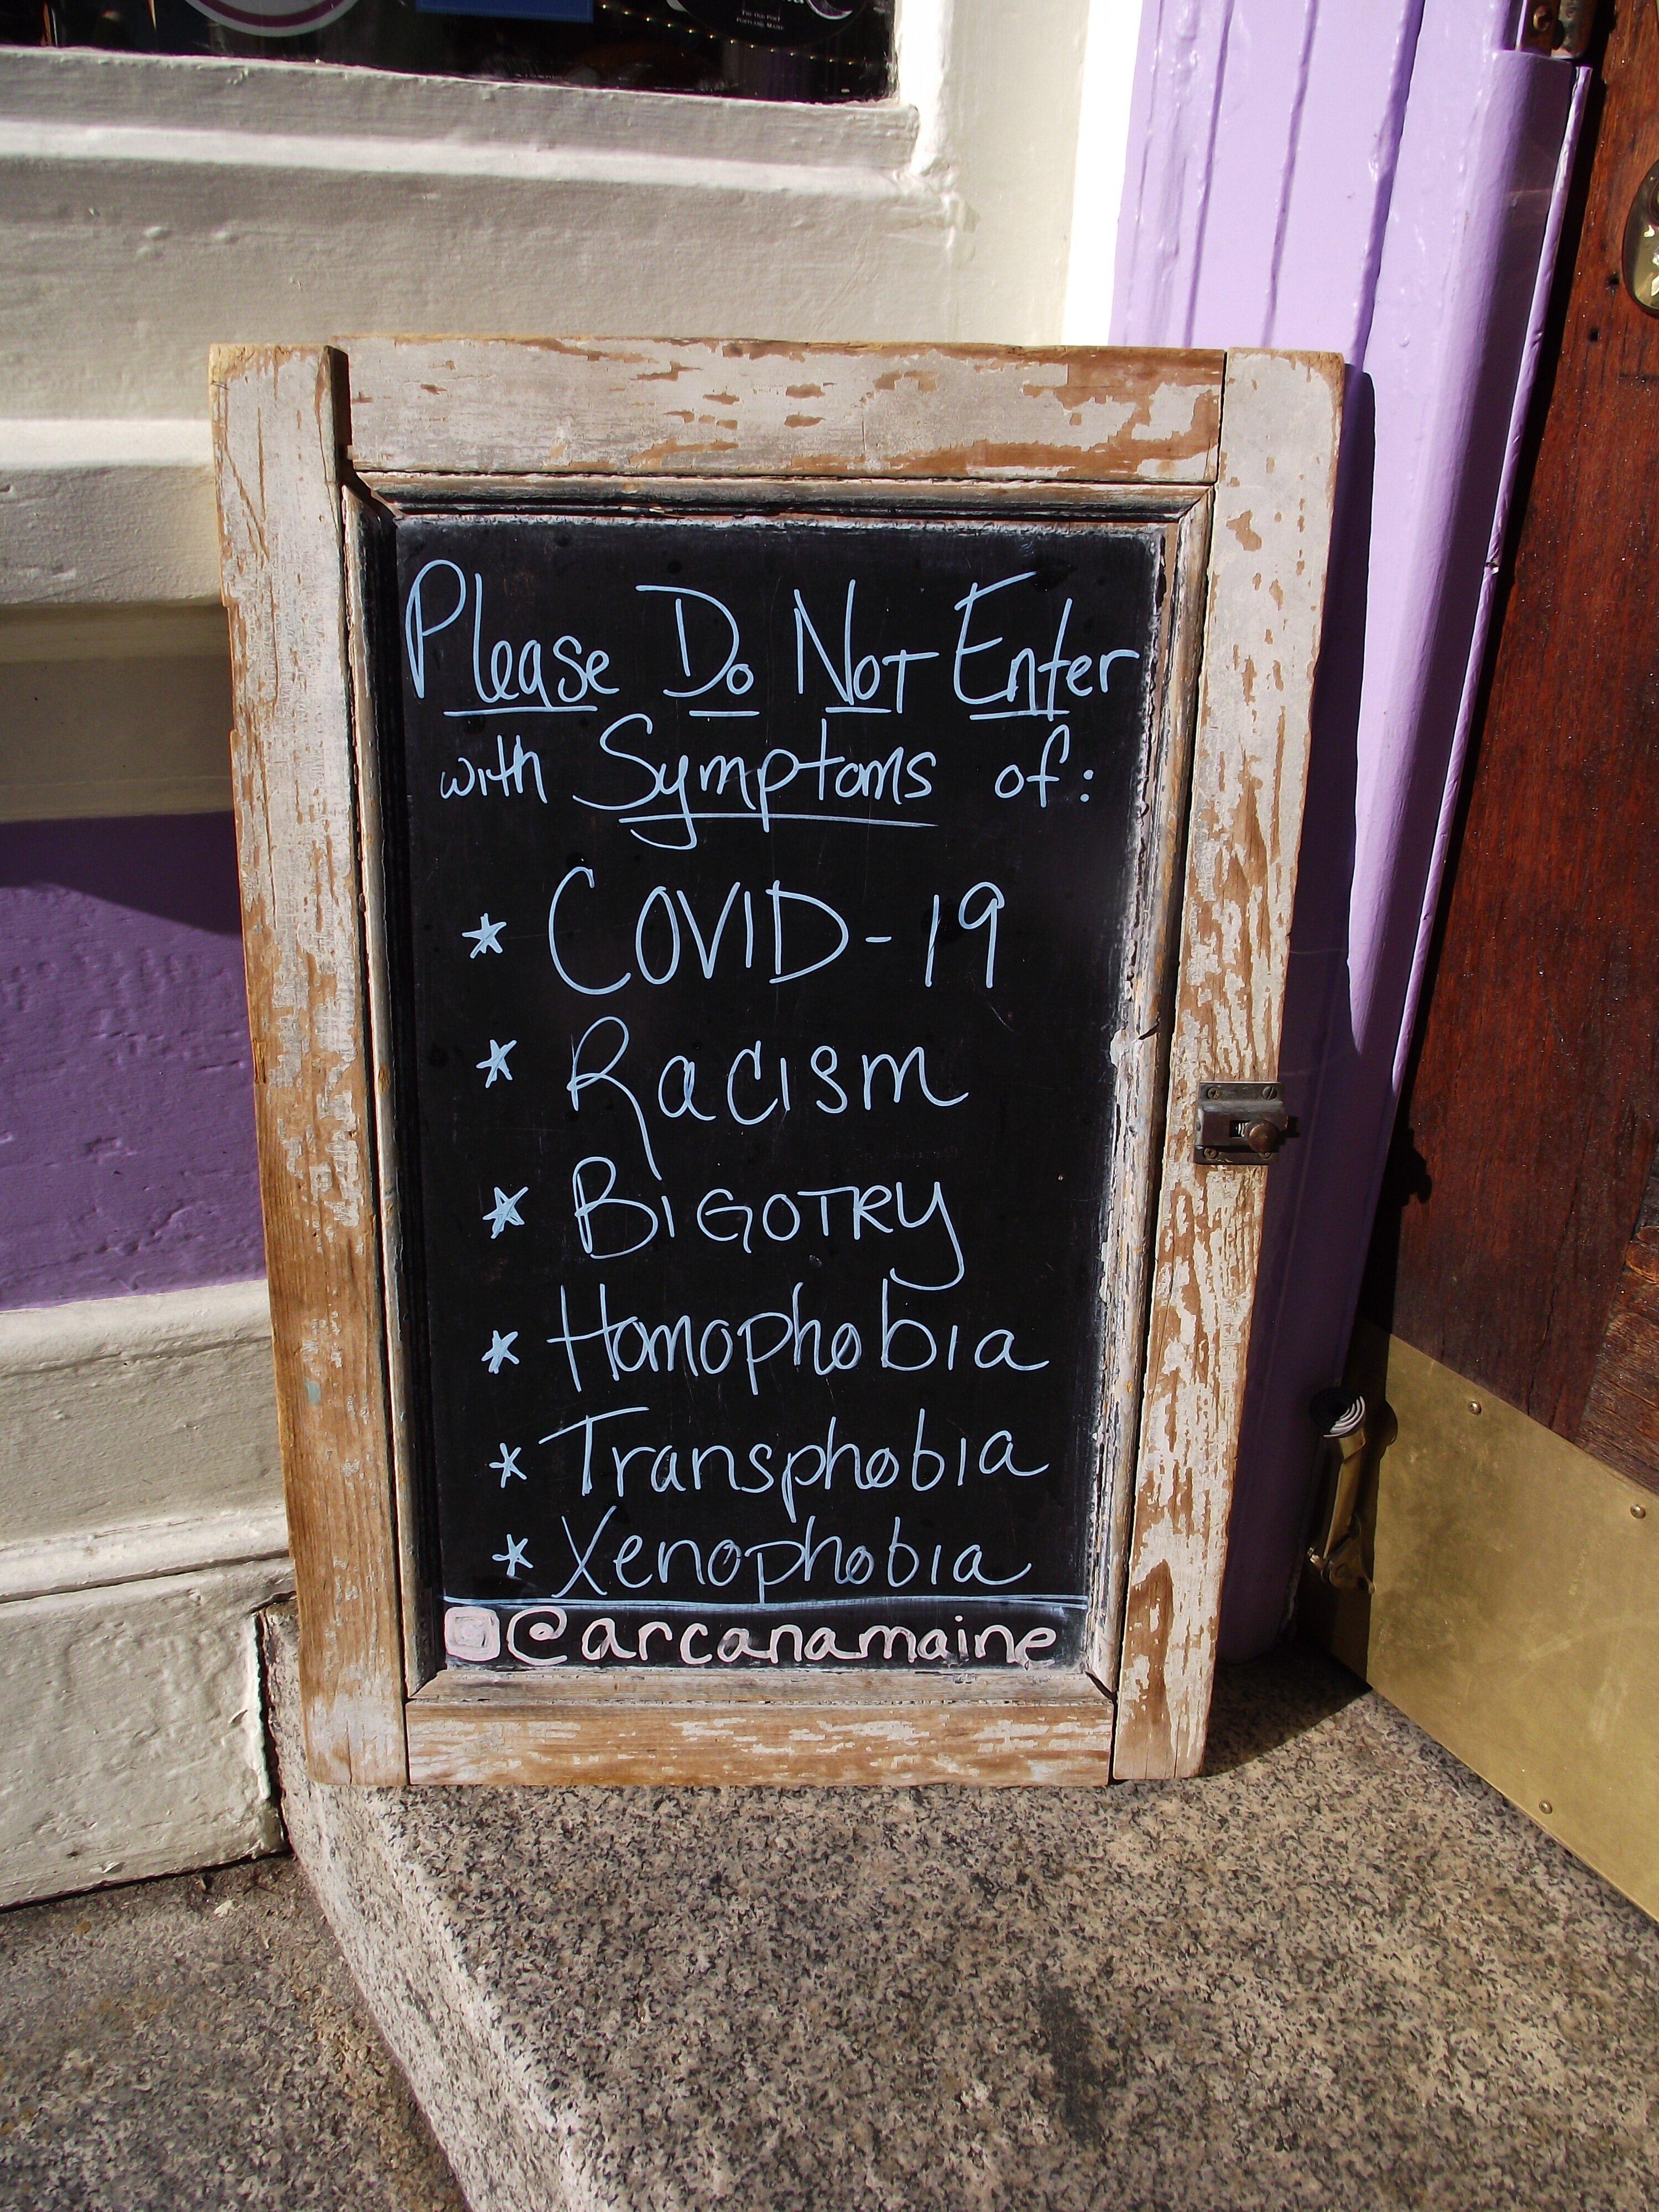 THE OLD PORT
PORTLAND, MAINE
Please Do Not Enter
with Symptoms of:
* COVID-19
* Racism
* BIGOTRY
* Homophobia
* Transphobia
* Xenophobia
@arcanamaine